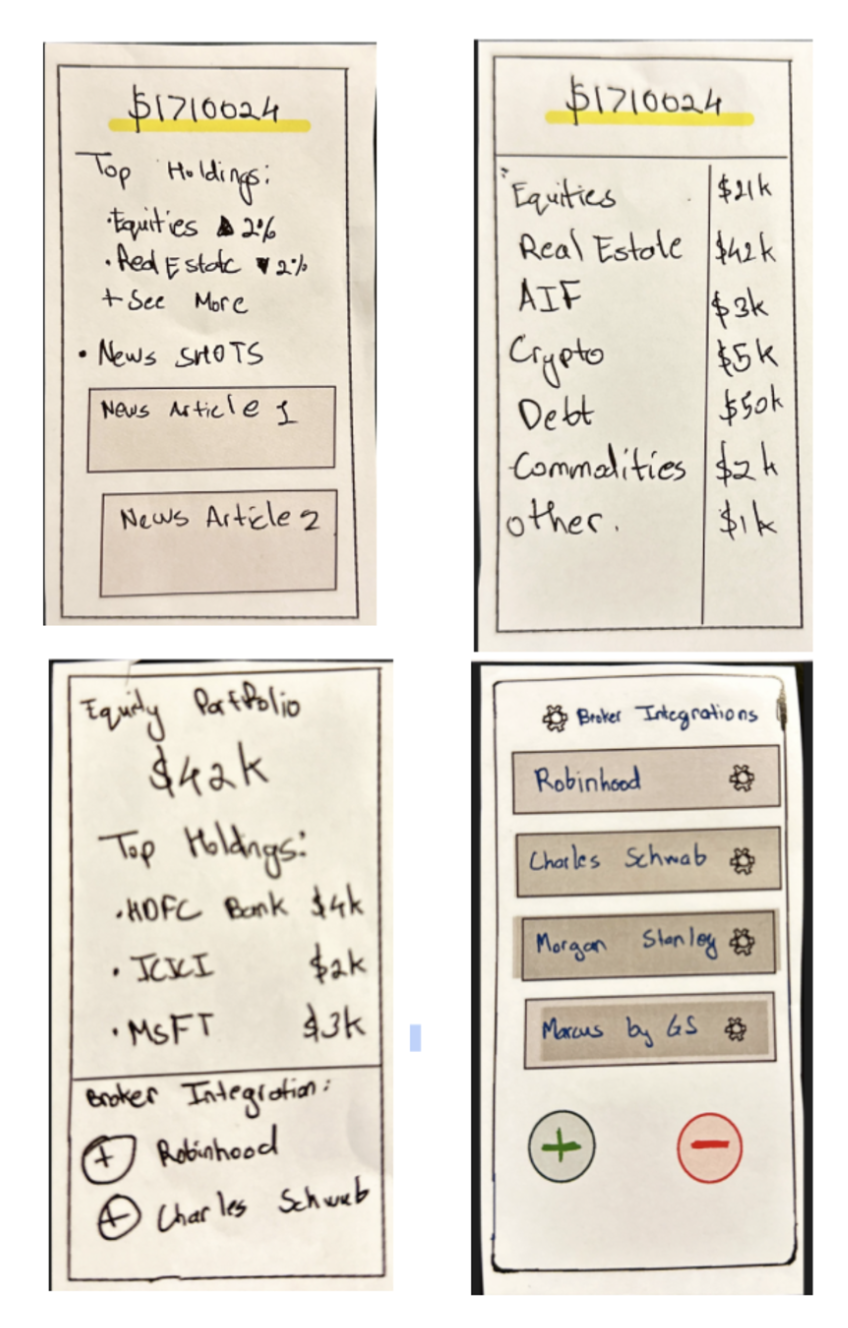 $1710024
Top Holdings:
• Equities ▲ 2%
• Real Estate ▼ 2%
+ See More
• News SHOTS
News Article 1
News Article 2
$1710024
Equities $21k
Real Estate $42k
AIF $3k
Crypto $5k
Debt $50k
Commodities $2k
other. $1k
Equity Portfolio
$42k
Top Holdings:
• HDFC Bank $4k
• ICICI $2k
• MSFT $3k
Broker Integration:
+ Robinhood
+ Charles Schwab
Broker Integrations
Robinhood
Charles Schwab
Morgan Stanley
Marcus by GS
+ −